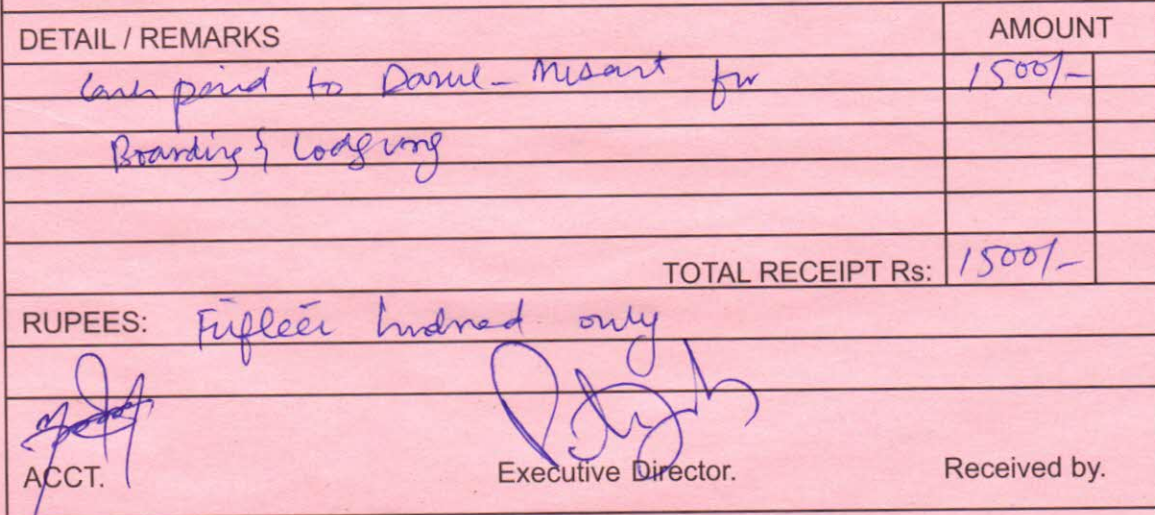 DETAIL / REMARKS AMOUNT
Cash paid to Darul- for 1500/-
Boarding & Lodging
TOTAL RECEIPT Rs: 1500/-
RUPEES: Fifteen hundred only
ACCT. Executive Director. Received by.